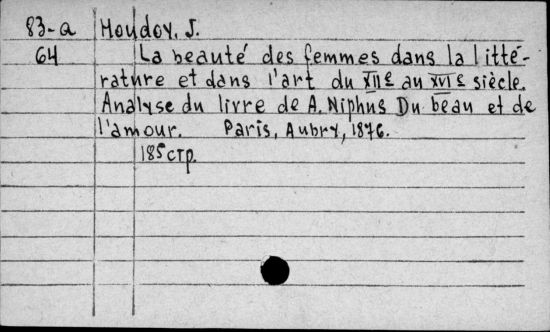 83-a Houdoy, J.
64 La beauté des femmes dans la litté-
rature et dans l'art du XIIe au XVIe siècle.
Analyse du livre de A. Niphus Du beau et de
l'amour. Paris, Aubry, 1876.
185 стр.